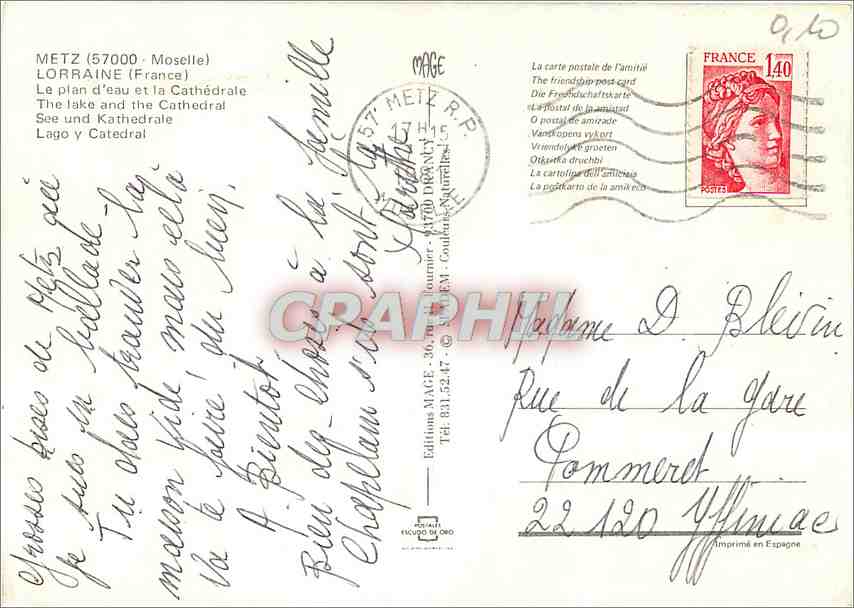 0,10
METZ (57000 - Moselle)
LORRAINE (France)
Le plan d'eau et la Cathédrale
The lake and the Cathedral
See und Kathedrale
Lago y Catedral
MAGE
57 METZ R.P.
17 H 15
La carte postale de l'amitié
The friendship post card
Die Freundschaftskarte
La postal de la amistad
O postal de amizade
Vanskapens vykort
Vriendelyke groeten
Otkritka druchbi
La cartolina dell'amicizia
La poŝtkarto de la amikeco
FRANCE
1,40
POSTES
Grosses bises de Metz où
je suis en ballade
Tu dois trouver la
maison vide mais cela
va te faire du bien.
A Bientôt
Bien des choses à la famille
Chapelain s'ils sont là
Editions MAGE - 36, rue H. Fournier - 93700 DRANCY
Tél: 831.52.47 - © SIADEM - Couleurs Naturelles
CPAPHIL
Madame D. Blévin
Rue de la gare
Pommeret
22120 Yffiniac
POSTALES
ESCUDO DE ORO
Imprimé en Espagne